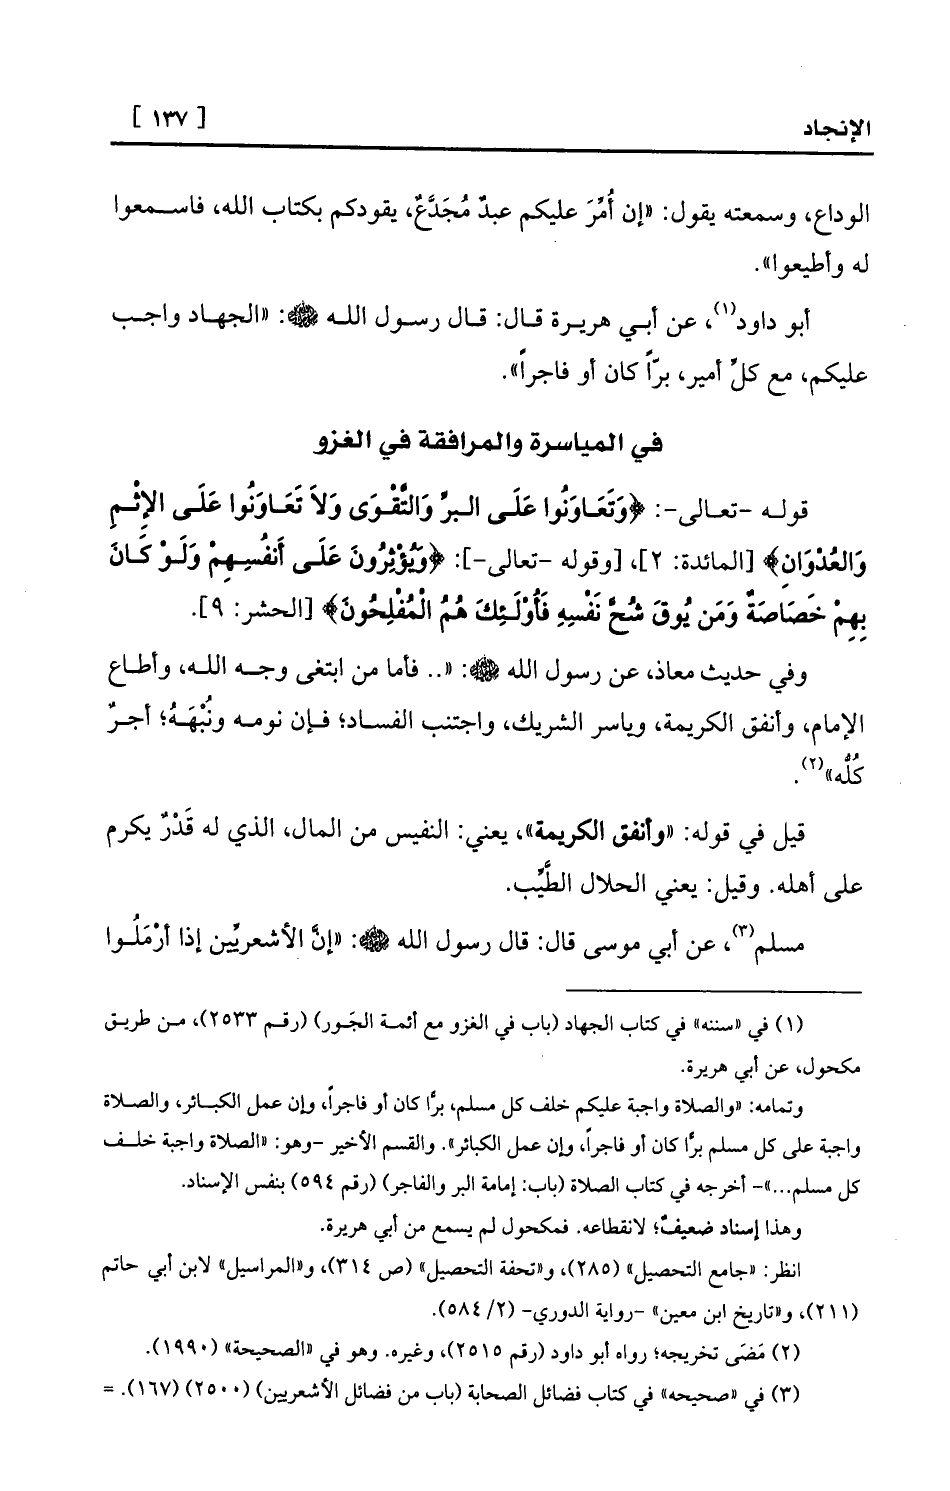 الإنجاد
[ ١٣٧ ]
الوداع، وسمعته يقول: «إن أُمِّرَ عليكم عبدٌ مُجَدَّعٌ، يقودكم بكتاب الله، فاسمعوا
له وأطيعوا».
أبو داود(١)، عن أبي هريرة قال: قال رسول الله ﷺ: «الجهاد واجب
عليكم، مع كلِّ أمير، برّاً كان أو فاجراً».
في المياسرة والمرافقة في الغزو
قوله -تعالى-: ﴿وَتَعَاوَنُوا عَلَى البرِّ وَالتَّقْوَى وَلاَ تَعَاوَنُوا عَلَى الإِثْمِ
وَالعُدْوَانِ﴾ [المائدة: ٢]، [وقوله -تعالى-]: ﴿وَيُؤْثِرُونَ عَلَى أَنفُسِهِمْ وَلَوْ كَانَ
بِهِمْ خَصَاصَةٌ وَمَن يُوقَ شُحَّ نَفْسِهِ فَأُوْلَئِكَ هُمُ الْمُفْلِحُونَ﴾ [الحشر: ٩].
وفي حديث معاذ، عن رسول الله ﷺ: «.. فأما من ابتغى وجه الله، وأطاع
الإمام، وأنفق الكريمة، وياسر الشريك، واجتنب الفساد؛ فإن نومه ونُبْهَهُ؛ أجرٌ
كُلُّه»(٢).
قيل في قوله: «وأنفق الكريمة»، يعني: النفيس من المال، الذي له قَدْرٌ يكرم
على أهله. وقيل: يعني الحلال الطَّيِّب.
مسلم(٣)، عن أبي موسى قال: قال رسول الله ﷺ: «إنَّ الأشعريِّين إذا أرْمَلُوا
(١) في «سننه» في كتاب الجهاد (باب في الغزو مع أئمة الجَور) (رقم ٢٥٣٣)، من طريق
مكحول، عن أبي هريرة.
وتمامه: «والصلاة واجبة عليكم خلف كل مسلم، برًّا كان أو فاجراً، وإن عمل الكبائر، والصلاة
واجبة على كل مسلم برًّا كان أو فاجراً، وإن عمل الكبائر». والقسم الأخير -وهو: «الصلاة واجبة خلف
كل مسلم...»- أخرجه في كتاب الصلاة (باب: إمامة البر والفاجر) (رقم ٥٩٤) بنفس الإسناد.
وهذا إسناد ضعيفٌ؛ لانقطاعه. فمكحول لم يسمع من أبي هريرة.
انظر: «جامع التحصيل» (٢٨٥)، و«تحفة التحصيل» (ص ٣١٤)، و«المراسيل» لابن أبي حاتم
(٢١١)، و«تاريخ ابن معين» -رواية الدوري- (٢/ ٥٨٤).
(٢) مَضَى تخريجه؛ رواه أبو داود (رقم ٢٥١٥)، وغيره. وهو في «الصحيحة» (١٩٩٠).
(٣) في «صحيحه» في كتاب فضائل الصحابة (باب من فضائل الأشعريين) (٢٥٠٠) (١٦٧). =